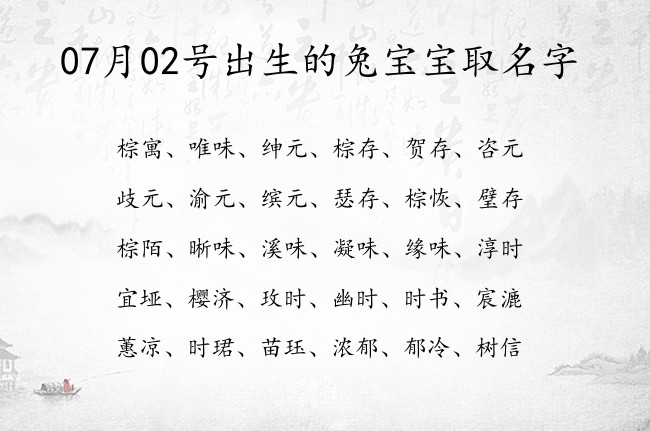 07月02号出生的兔宝宝取名字
棕寓、唯味、绅元、棕存、贺存、咨元
歧元、渝元、缤元、瑟存、棕恢、璧存
棕陌、晰味、溪味、凝味、缘味、淳时
宜垭、樱济、玫时、幽时、时书、宸漉
蕙凉、时珺、苗珏、浓郁、郁冷、树信